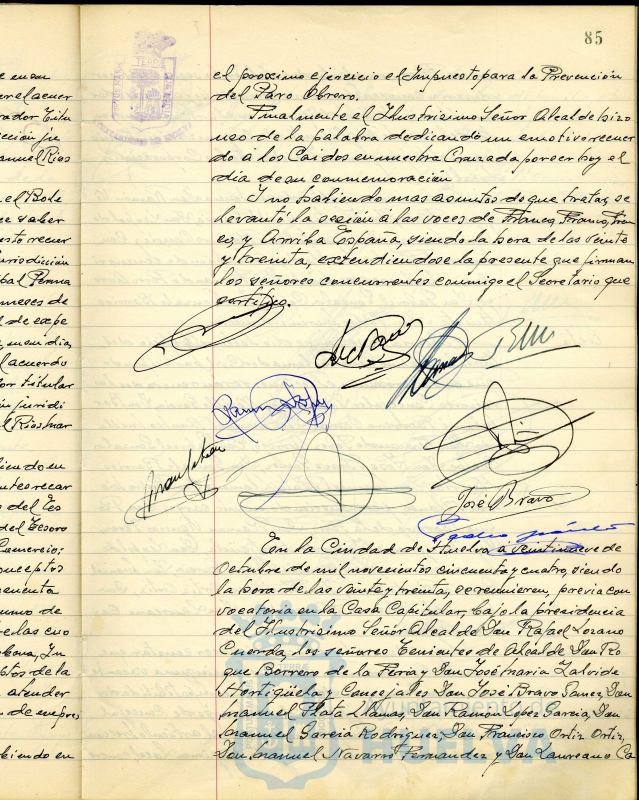 85
e en su
er el acuer
rador Titu
ección ju
anuel Rios
el Bole
ce saber
esto recur
urisdicción
meses de
l de expe
s, en su dia
l acuerdo
or titular
n juridi
l Rios Mar
iendo en
s del Tes
del Tesoro
Comercio;
onceptos
umo de
e las cuo
ptos de la
atender
biendo en
el proximo ejercicio el Impuesto para la Prevención
del Paro Obrero.
Finalmente el Ilustrisimo Señor Alcalde hizo
uso de la palabra dedicando un emotivo recuer
do á los Caidos en nuestra Cruzada por ser hoy el
dia de su conmemoración
Y no habiendo mas asuntos de que tratar, se
levantó la sesión a las voces de Franco, Franco, Fran
co, y Arriba España, siendo la hora de las veinte
y treinta, extendiendose la presente que firman
los señores concurrentes conmigo el Secretario que
certifico.
José Bravo
En la Ciudad de Huelva á veintinueve de
Octubre de mil novecientos cincuenta y cuatro, siendo
la hora de las veinte y treinta, se reunieron, previa con
vocatoria en la Casa Capitular, bajo la presidencia
del Ilustrisimo Señor Alcalde Don Rafael Lozano
Cuerda, los señores Tenientes de Alcalde Don Ro
que Borrero de la Feria y Don José Maria Zalvide
Hortigüela y Concejales Don José Bravo Gomez, Don
Manuel Plata Llamas, Don Ramon Lopez Garcia, Don
Manuel Garcia Rodriguez, Don Francisco Ortiz Ortiz,
Don Manuel Navarro Fernandez y Don Laureano Ca